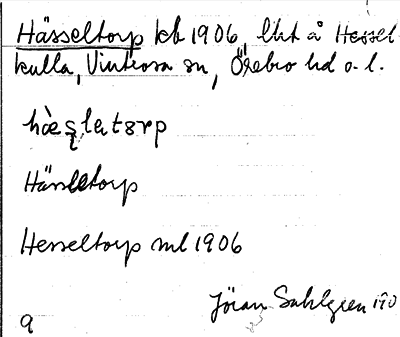 Hässeltorp kb 1906, lht å Hessel-
kulla, Vintrosa sn, Örebro hd o. l.
hæ̀s̨letorp
Hässletorp
Hesseltorp ml 1906
Jöran Sahlgren
9